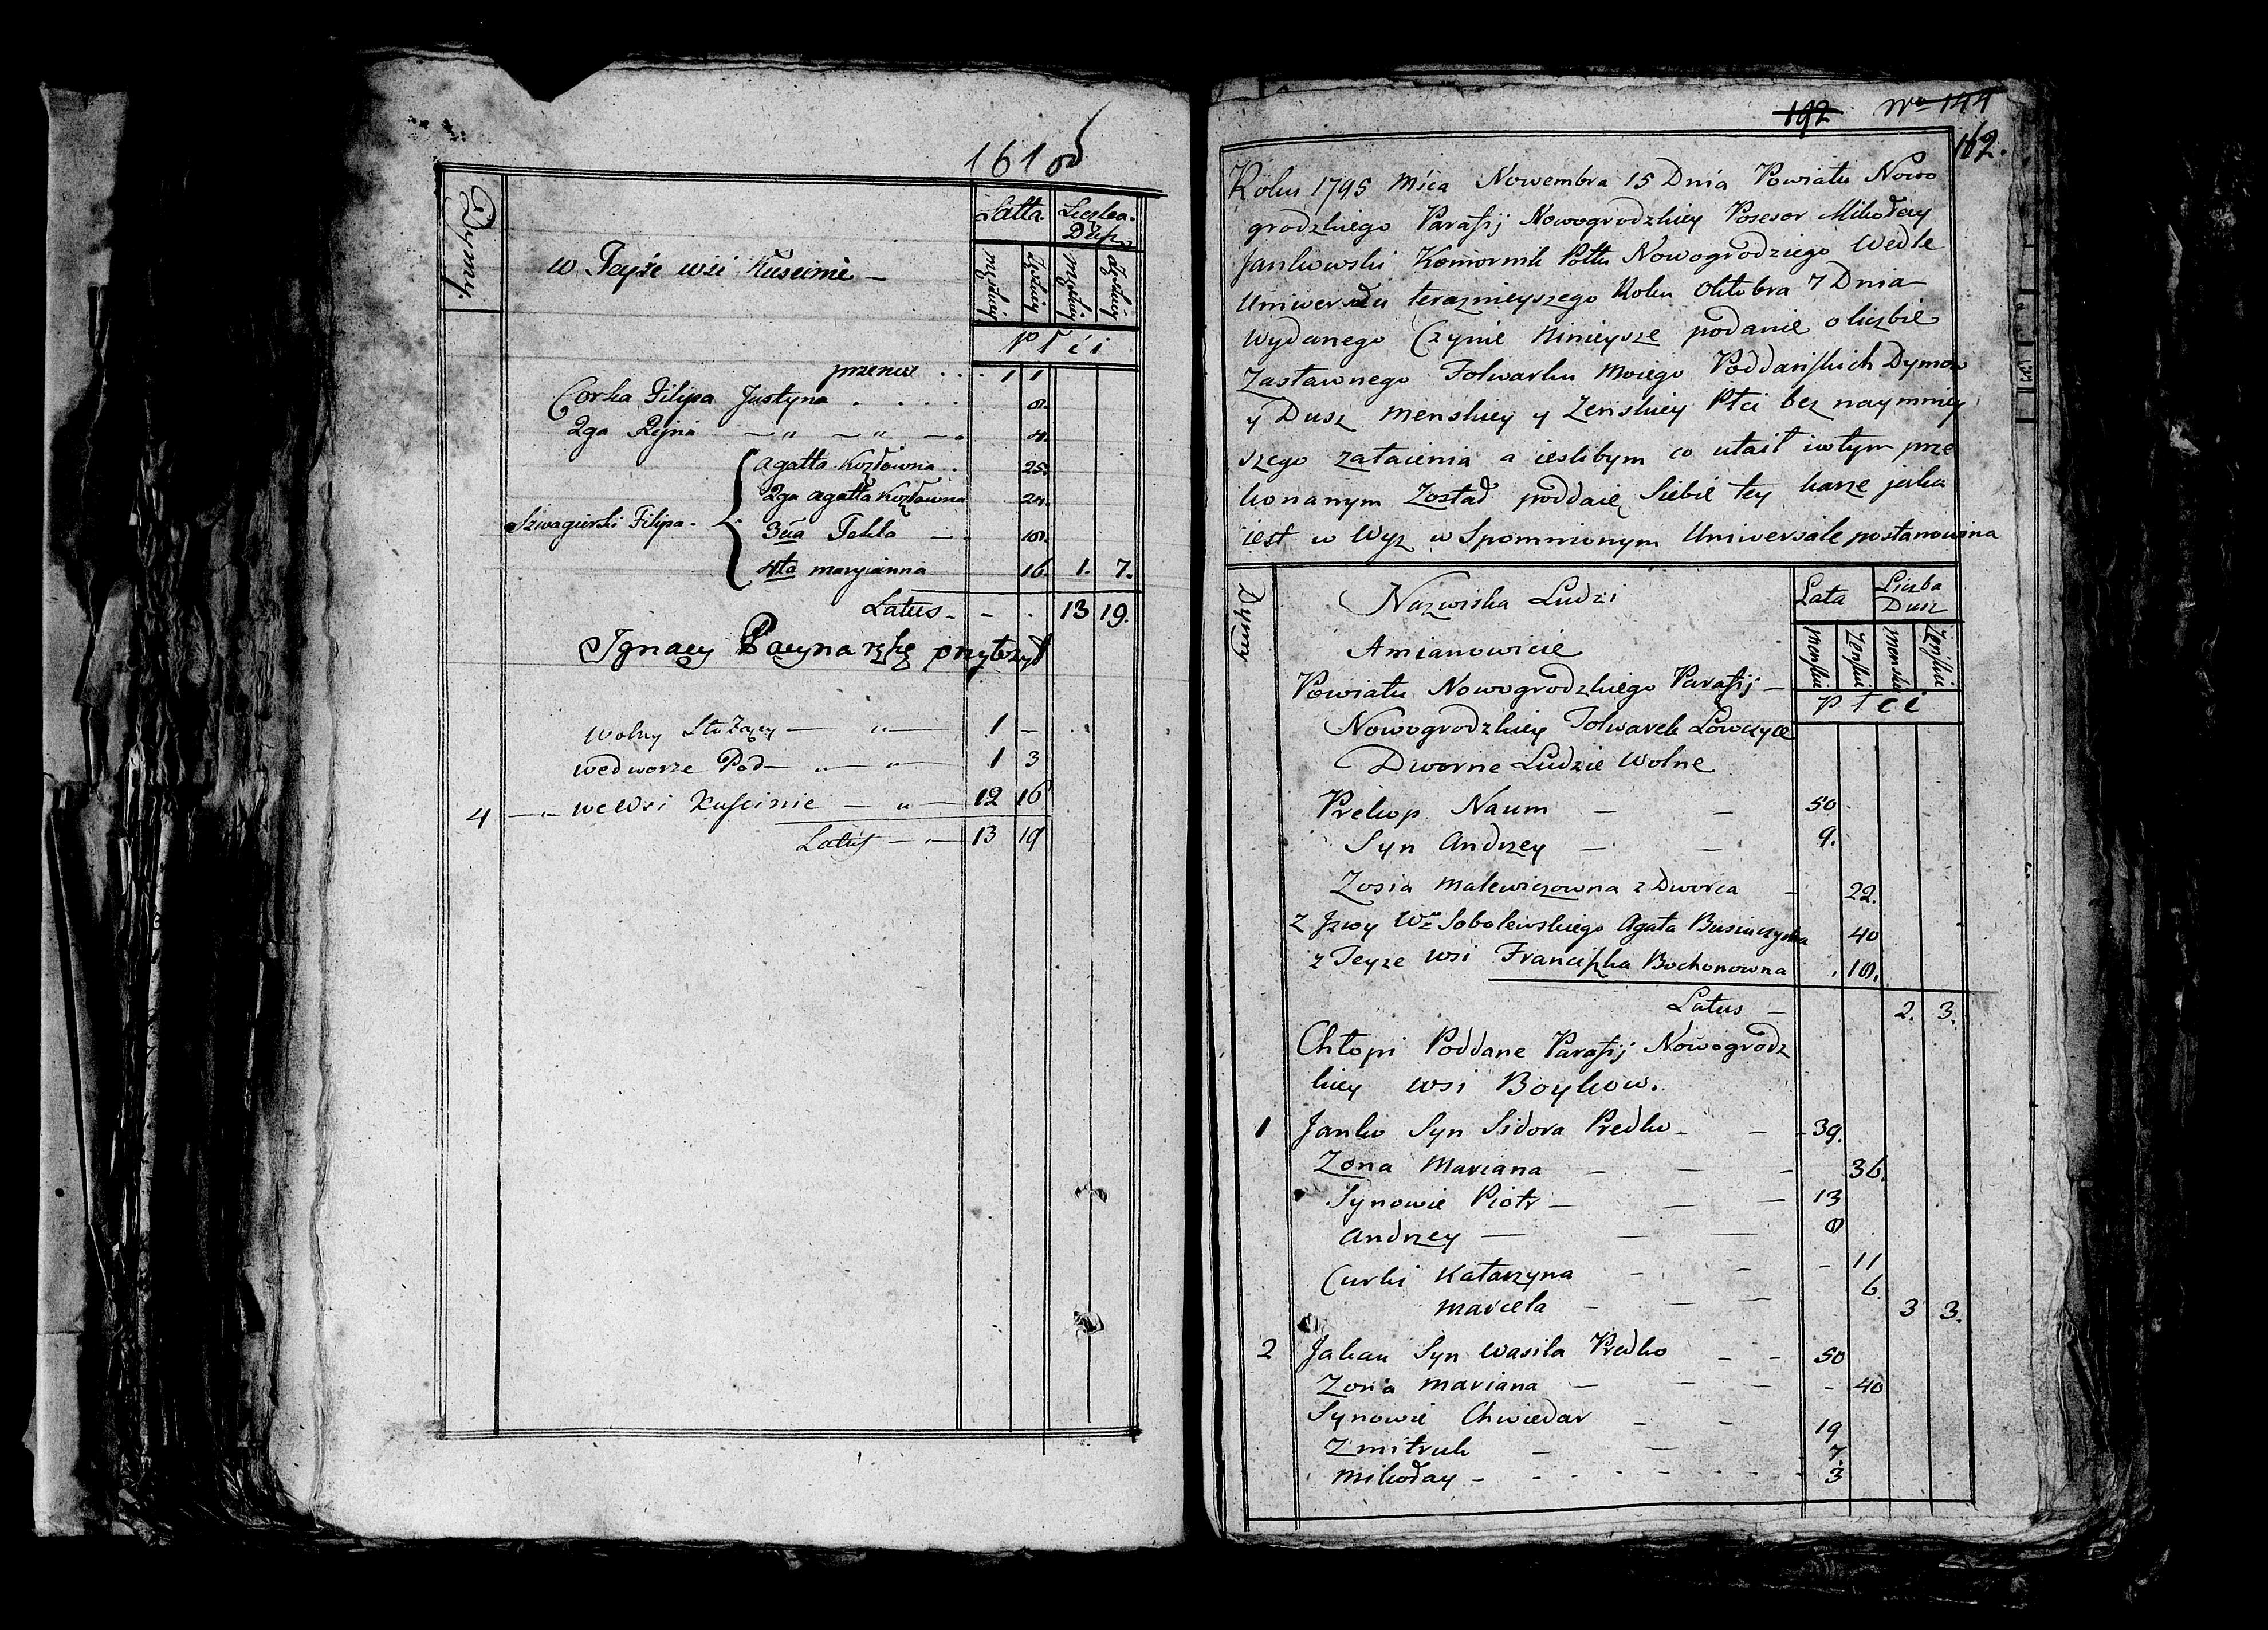 161 od
Dymy.
w Teyże wsi Kuscinie
Latta. Liczba Dusz
męzkiey Zęskiey męzkiey Zęskiey
płci
przenie . . . 1 1
Corka Filipa Justyna . . . . 8.
2ga Rejna — „ — „ — . 4.
Agatta Kozłowna . 25.
2ga Agatta Kozłowna 24.
Szwagierki Filipa.
3cia Tekla — 18.
4ta maryianna 16. 1. 7.
Latus - - . 13 19.
Ignacy Pacyna rękę przyłożył
Wolny Służący — „ — 1 -
wedworze Pod — „ — „ — 1 3
4 — „ — weWsi Kuscinie — „ — 12 16
Latus — „ — 13 19
192 Nro 144
162.
Roku 1795 Mśca Nowembra 15 Dnia Powiatu Nowo
grodzkiego Parafij Nowogrodzkiey Posesor Mikołay
Jankowski Komornik Pottu Nowogrodziego Wedle
Uniwersału teraznieyszego Roku Oktobra 7 Dnia
Wydanego Czynie Ninieysze podanie o liczbie
Zastawnego Folwarku Moiego Poddańskich Dymow
y Dusz Menskiey y Zenskiey Płci bez naymniey
szego zataienia a ieslibym co utaił iwtym prze
konanym Został poddaię Siebie tey karze jaka
iest w Wyz w Spomnionym Uniwersale postanowiona
Dymy
Nazwiska Ludzi
Lata Liczba Dusz
Amianowicie
Menskie Zenskie Menskie Zenskie
Powiatu Nowogrodzkiego Parafij —
płci
Nowogrodzkiey Folwarek Łowczyce
Dworne Ludzie Wolne
Prekop Naum — — 50
Syn Andrzey — — 9.
Zosia Malewiczowna z Dworca - 22.
z Jzwy Wo Sobolewskiego Agata Businczycka 40
z Teyze wsi Franciszka Bochonowna . 18.
Latus — 2. 3.
Chłopi Poddane Parafij Nowogrodz
kiey wsi Boykow.
1 Janko Syn Sidora Predko - — - 39.
Zona Mariana — — - 36.
Synowie Piotr — — — 13
Andrzey — — — 8
Curki Katarzyna — - - 11
Marcela — — — 6. 3 3.
2 Jakau Syn Wasila Predko — - 50
Zona Mariana — — — - 40
Synowie Chwiedar — — 19
Zmitruk — — 7.
Mikołay - - - - - - - 3